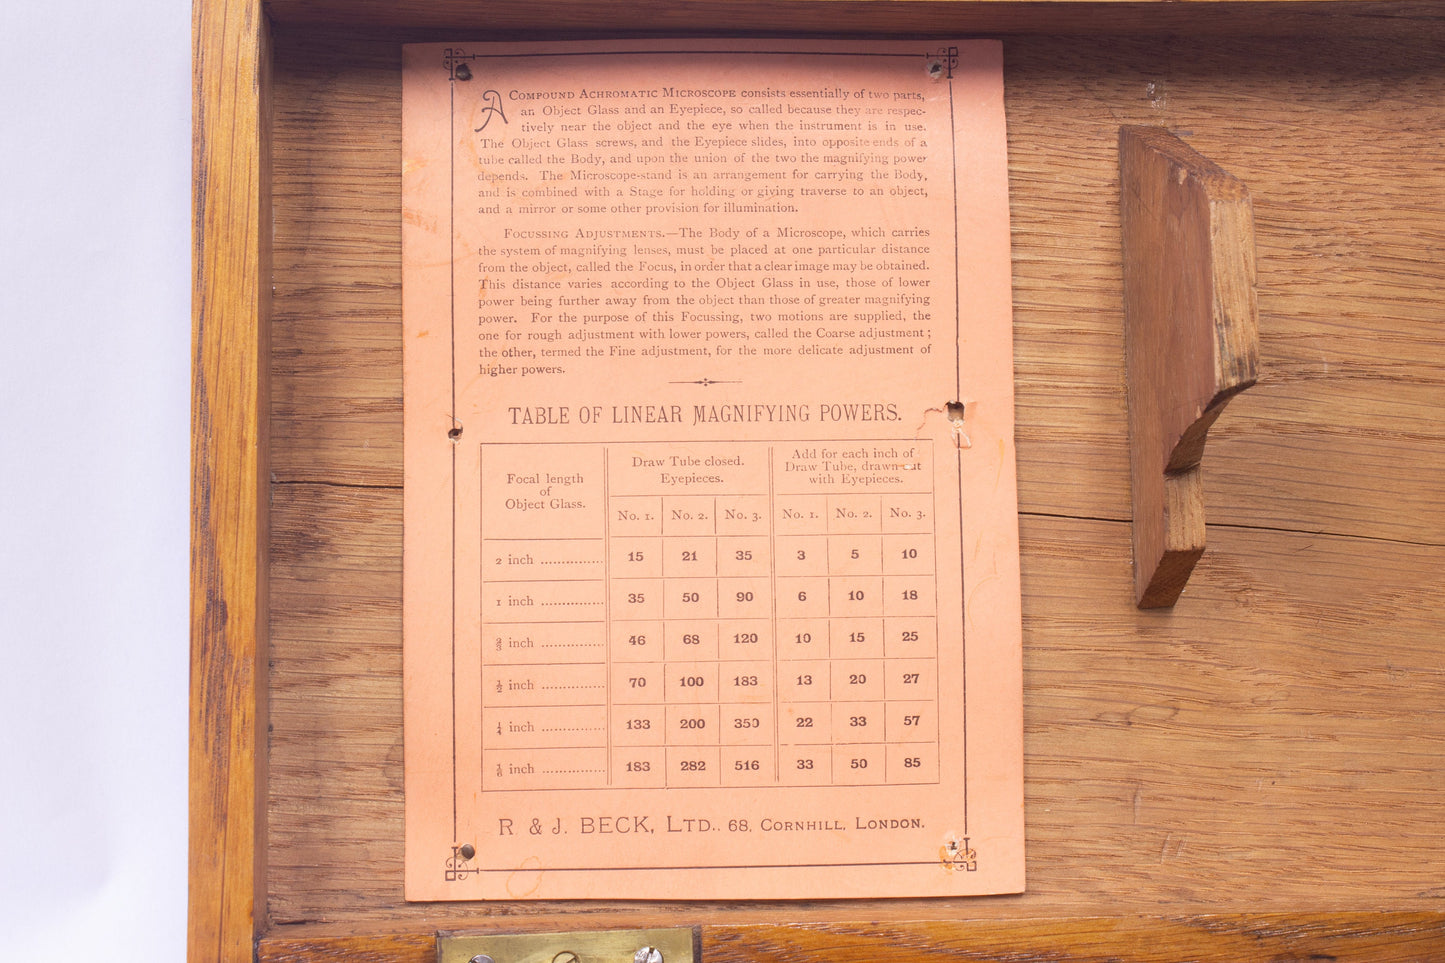 A COMPOUND ACHROMATIC MICROSCOPE consists essentially of two parts,
an Object Glass and an Eyepiece, so called because they are respec-
tively near the object and the eye when the instrument is in use.
The Object Glass screws, and the Eyepiece slides, into opposite ends of a
tube called the Body, and upon the union of the two the magnifying power
depends. The Microscope-stand is an arrangement for carrying the Body,
and is combined with a Stage for holding or giving traverse to an object,
and a mirror or some other provision for illumination.
FOCUSSING ADJUSTMENTS.—The Body of a Microscope, which carries
the system of magnifying lenses, must be placed at one particular distance
from the object, called the Focus, in order that a clear image may be obtained.
This distance varies according to the Object Glass in use, those of lower
power being further away from the object than those of greater magnifying
power. For the purpose of this Focussing, two motions are supplied, the
one for rough adjustment with lower powers, called the Coarse adjustment;
the other, termed the Fine adjustment, for the more delicate adjustment of
higher powers.
TABLE OF LINEAR MAGNIFYING POWERS.
Focal length
of
Object Glass.
Draw Tube closed.
Eyepieces.
Add for each inch of
Draw Tube, drawn out
with Eyepieces.
No. 1. No. 2. No. 3. No. 1. No. 2. No. 3.
2 inch ............... 15 21 35 3 5 10
1 inch ............... 35 50 90 6 10 18
⅔ inch ............... 46 68 120 10 15 25
½ inch ............... 70 100 183 13 20 27
¼ inch ............... 133 200 350 22 33 57
⅙ inch ............... 183 282 516 33 50 85
R & J. BECK, LTD., 68, CORNHILL, LONDON.